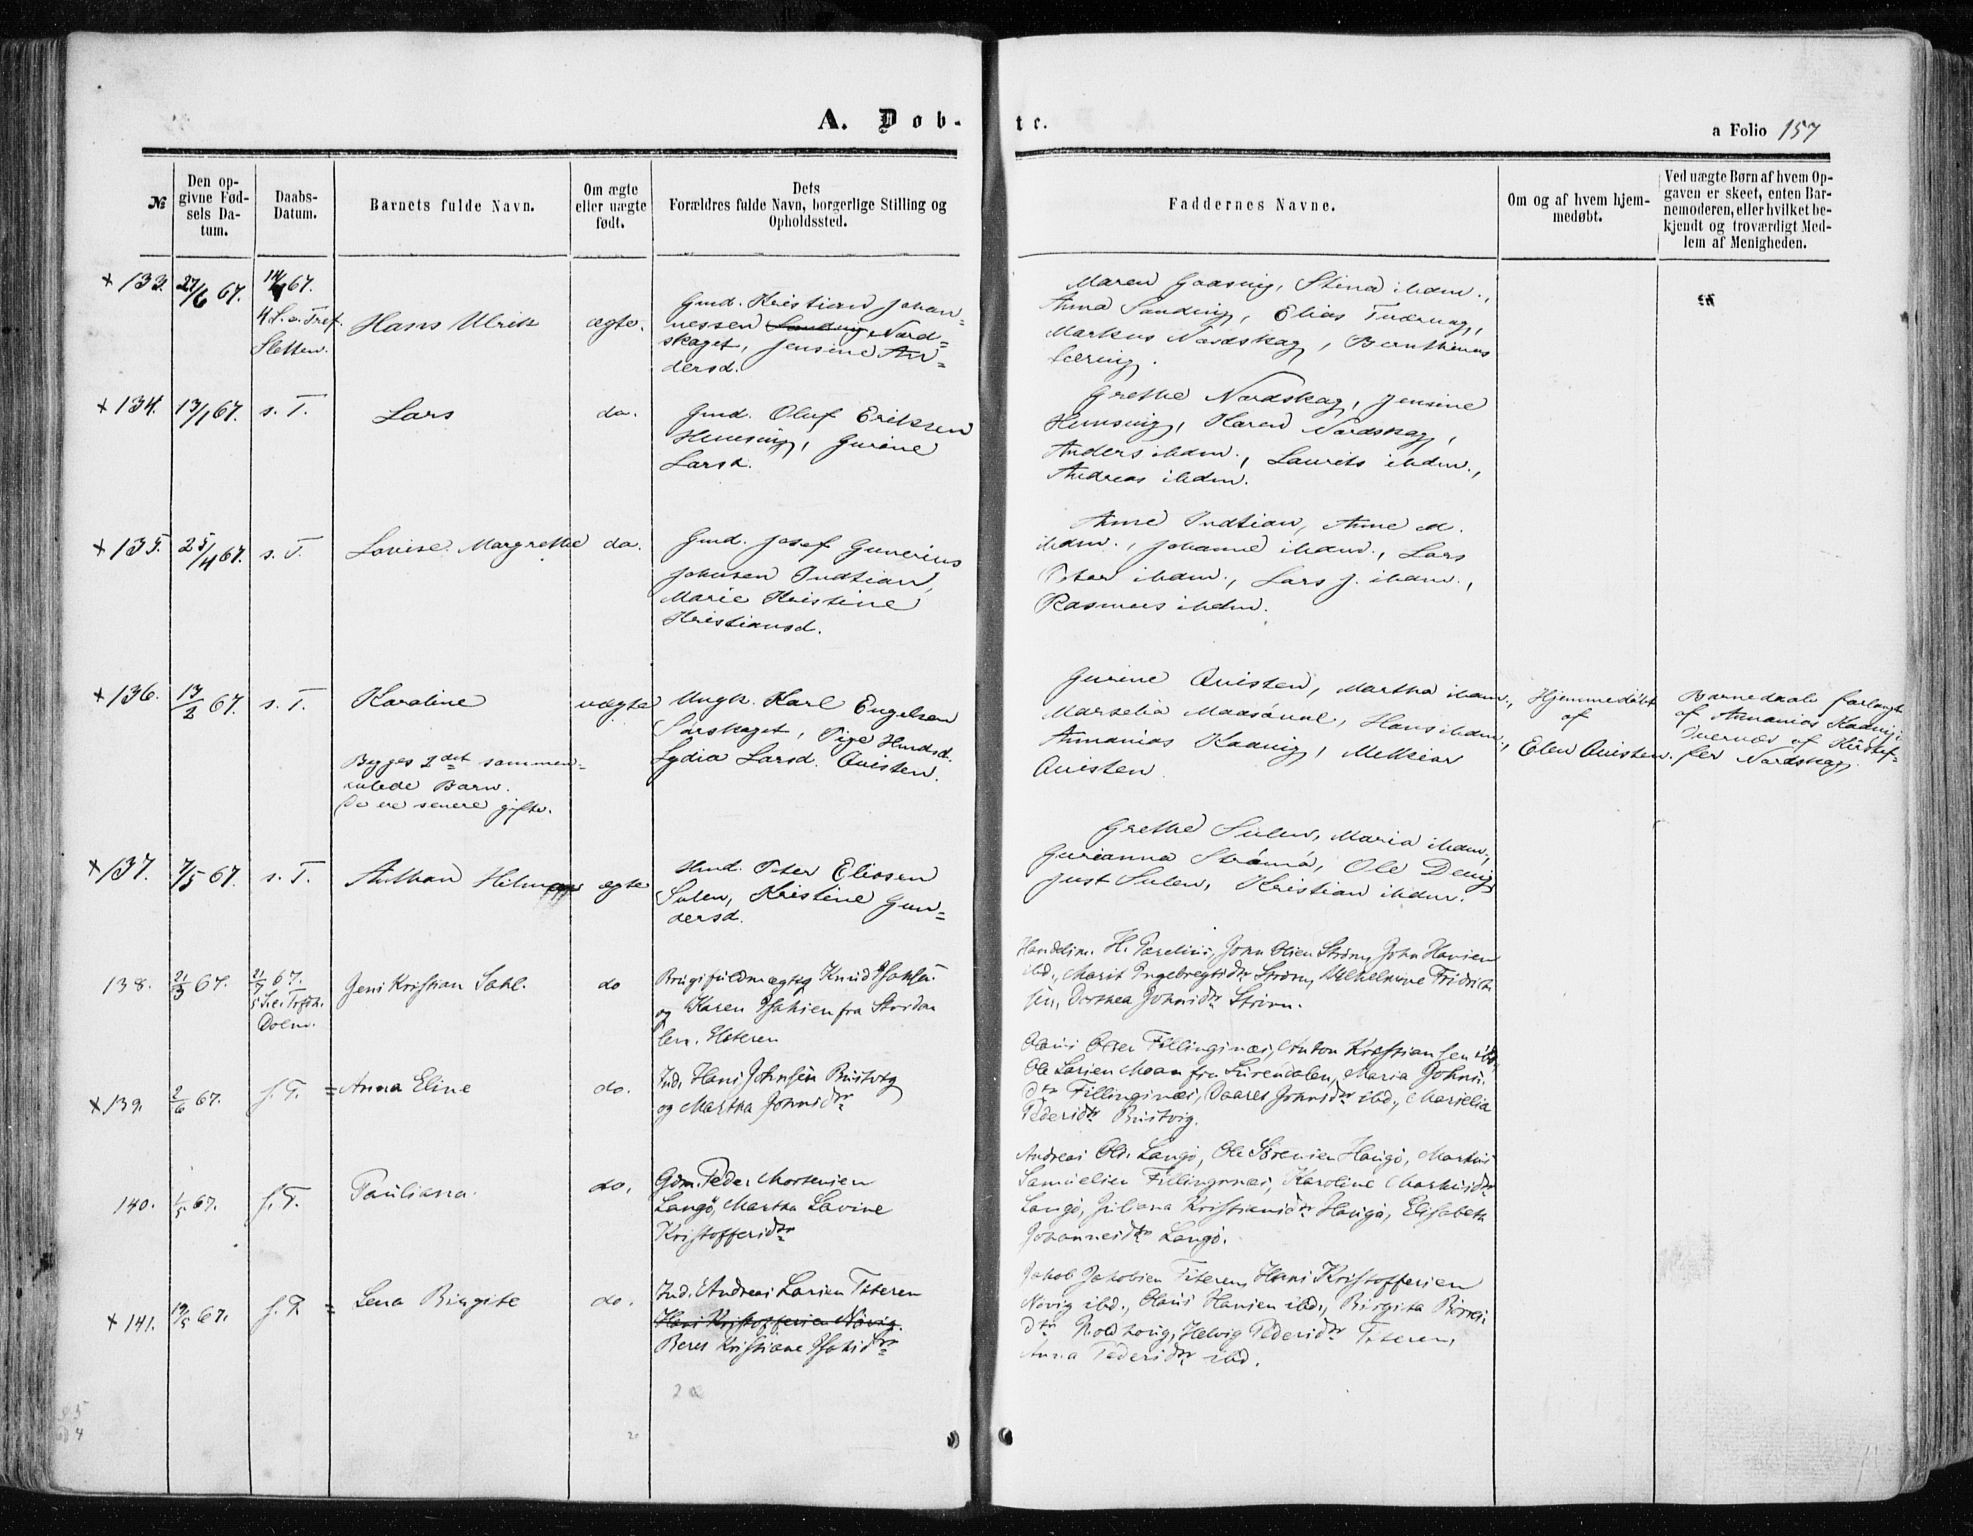 A. Døb-
te.
a Folio 157
№
Den op-
givne Fød-
sels Da-
tum.
Daabs-
Datum.
Barnets fulde Navn.
Om ægte
eller uægte
født.
Dets
Forældres fulde Navn, borgerlige Stilling og
Opholdssted.
Faddernes Navne.
Om og af hvem hjem-
medøbt.
Ved uægte Børn af hvem Op-
gaven er skeet, enten Bar-
nemoderen, eller hvilket be-
kjendt og troværdigt Med-
lem af Menigheden.
+ 133.
27/6 67.
14/ 67.
4 S. e. Tref.
Sletten.
Hans Ulrik
ægte.
Gmd. Kristian Johan-
nessen Nord-
skaget, Jensine An-
dersd.
Maren Gaasvig, Stina ibdm.,
Anna Sandvig, Elias
Markus Nordskag, Bernthinus
+ 134.
13/1 67.
s. T.
Lars
do.
Gmd. Oluf Eriksen
Hemsnig, Gurine
Larsd.
Grethe Nordskag, Jensine
Hemsnig, Karen Nordskag,
Anders ibdm., Laurits ibdm.,
Andreas ibdm.
+ 135.
25/4 67.
s. T.
Lovise Margrethe
do.
Gmd. Josef Gunerius
Johnsen Indtian,
Marie Kristine
Kristiansd.
Anne Indtian, Anne M.
ibdm., Johanne ibdm., Lars
Peter ibdm., Lars J. ibdm.,
Rasmus ibdm.
+ 136.
13/2 67.
s. T.
Karoline
uægte
Ungk. Karl Engelsen
Sørskaget, Pige
Lydia Larsd. Qvisten.
Begges 2det sammen-
avlede Barn.
De ere senere gifte.
Gurine Qvisten, Martha ibdm.,
Marselia Maasøval, Hans ibdm.,
Annanias Kadvig, Melkior
Qvisten.
Hjemmedøbt
af
Elen Qvisten.
Barnedaab forlangt
af Annanias Kadvig.
af Kristof-
fer Nordskag.
+ 137.
7/5 67.
s. T.
Anthon Hilmar
ægte
Hmd. Peter Eliasen
Sulen, Kristine Gun-
dersd.
Grethe Sulen, Maria ibdm.,
Gurianna Strømø, Ole
Just Sulen, Kristian ibdm.
138.
21/3 67.
21/7 67.
5 S. e. Trefdh.
Dolm.
Jens Kristian Dahl.
do
Brugsfuldmægtig Knud
og Karen Isaksen fra Storda-
len. Hiteren
Handelsm. H. Parelius, John Olsen Strøm, John Hansen
ibd., Marit Ingebregtsdtr Strøm, Wilhelmine Fridrich-
sen, Dorthea Johnsdtr Strøm.
+ 139.
2/6 67.
s. T.
= Anna Eline
do.
Ind. Hans Johnsen Bustvig
og Martha Johnsdtr
Olaus Olsen Fillingsnæs, Anton Kristiansen ibd.,
Ole Larsen Moan fra Surendalen, Maria Johns-
dtr Fillingsnæs, Johnsdtr ibd., Marselia
Pedersdtr Bustvig.
140.
1/5 67.
s. T.
Pauliana.
do.
Gdm. Peder Mortensen
Langø, Martha Lovine
Kristoffersdtr
Andreas Ols. Langø, Ole Sørensen Haugø, Markus
Samuelsen Fillingsnæs, Karoline Markusdtr
Langø, Juliana Kristiansdtr Haugø, Elisabeth
Johannesdtr Langø.
+ 141.
19/5 67.
s. T.
= Lena Birgite
do.
Ind. Andreas Larsen Titeren
Hans Kristoffersen Novig.
Beret Kristiane Isaksdtr
Jakob Jakobsen Titeren, Hans Kristoffersen
Novig ibd., Olaus Hansen ibd., Birgita
dtr Noldhaug, Helvig Pedersdtr Titeren,
Anna Pedersdtr ibd.